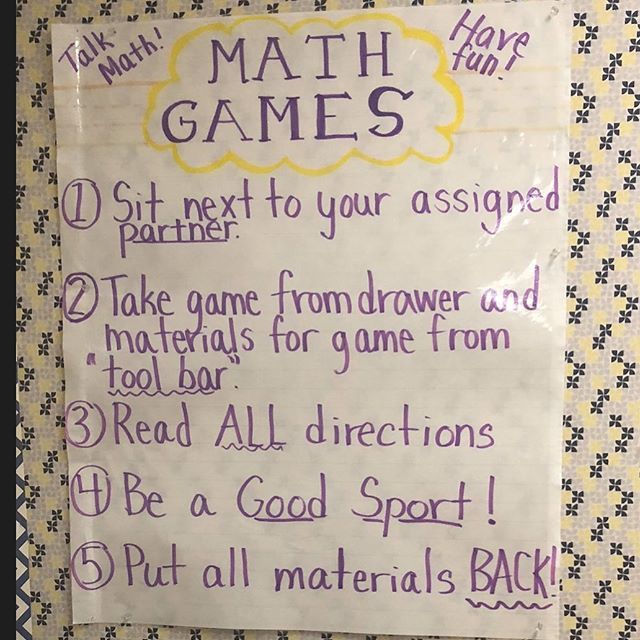 Talk
Math!
MATH
GAMES
Have
fun!
① Sit next to your assigned
partner.
② Take game from drawer and
materials for game from
"tool bar".
③ Read ALL directions
④ Be a Good Sport!
⑤ Put all materials BACK!